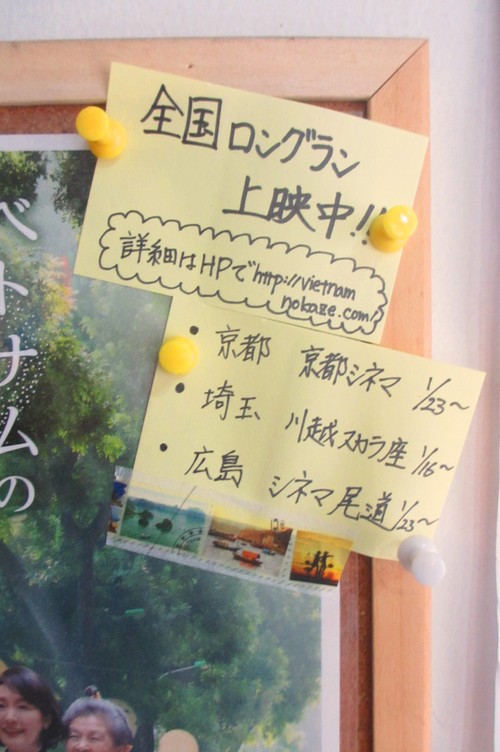 全国ロングラン
上映中!!
詳細はHPでhttp://vietnam
nokaze.com/
• 京都 京都シネマ 1/23～
• 埼玉 川越スカラ座 1/16～
• 広島 シネマ尾道 1/23～
ベトナムの